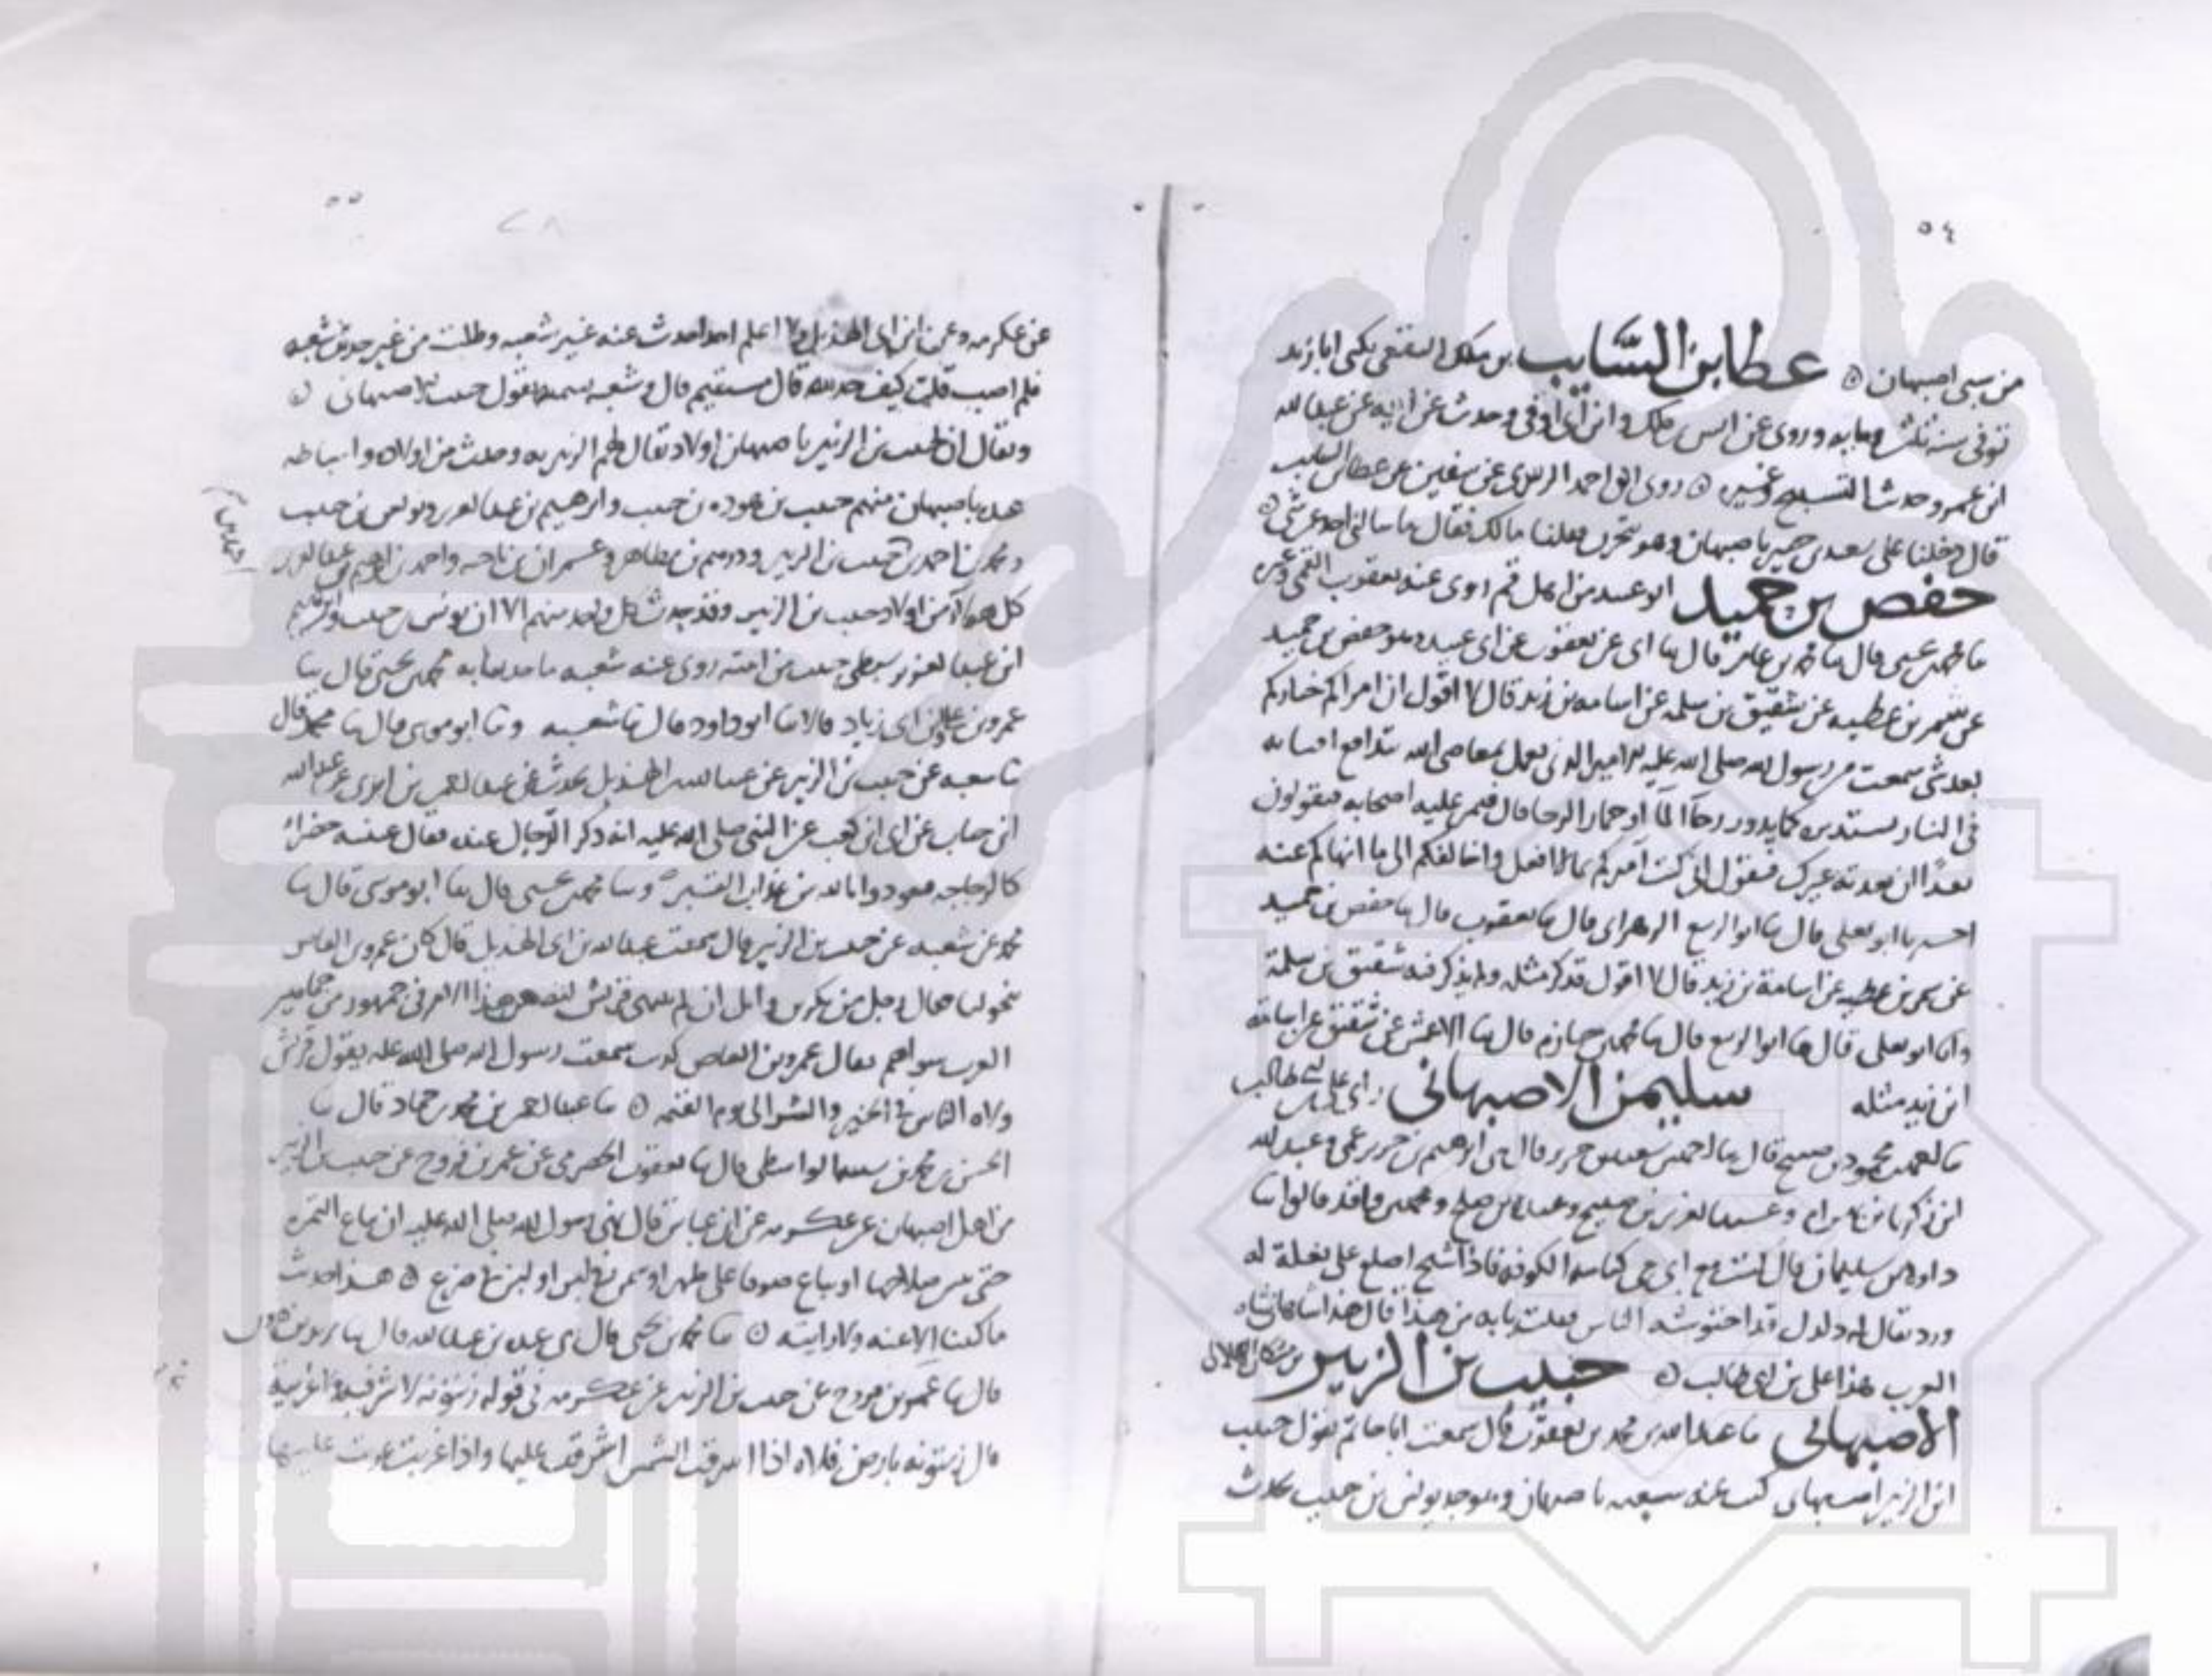 ٥٤
من سبى اصبهان ٥ عطا بن السَّايب بن ملك الثقفي يكنى ابا زيد
توفى سنه ثلث ومايه وروى عن انس بن ملك وابن ابى اوفى وحدث عن ابيه عن عبد الله
ابن عمرو حدثنا التسبيح وغيره ٥ روى ابو احمد الزبيرى عن سفين عن عطا بن السايب
قال دخلنا على سعيد بن جبير باصبهان وهو محزن فقلنا مالك فقال ما سالنى احد عن شى ٥
حفص بن حميد ابو عبيد من اهل قم روى عنه يعقوب القمى وغيره
ثنا محمد بن عيسى قال ثنا محمد بن عامر قال ثنا ابى عن يعقوب عن ابى عبيد وهو حفص بن حميد
عن شمر بن عطيه عن شقيق بن سلمه عن اسامه بن زيد قال لا اقول ان امراكم خياركم
بعد شى سمعت من رسول الله صلى الله عليه الامير الذى يعمل بمعاصى الله
فى النار يستدير كما يدور رحا او حمار الرحا قال فيمر عليه اصحابه فيقولون
فيقول انى كنت آمركم بما لا افعل واخالفكم الى ما انهاكم عنه
اخبرنا ابو يعلى قال ثنا ابو الربيع الزهرانى قال ثنا يعقوب قال ثنا حفص بن حميد
عن شمر بن عطيه عن اسامة بن زيد قال لا اقول فذكر مثله ولم يذكر فيه شقيق بن سلمة
وانا ابو يعلى قال ثنا ابو الربيع قال ثنا محمد بن حازم قال ثنا الاعمش عن شقيق عن اسامه
ابن زيد مثله سليمن الاصبهانى راى على بن ابى طالب
محمود بن صبيح قال ثنا احمد بن سعيد بن جرير قال ثنى ابرهيم بن جرير عمى وعبد الله
ابن زكريا وعبد العزيز بن صبيح وعبد الله بن صلح ومحمد بن واقد قالوا ثنا
داود بن سليمان قال كنت مع ابى فى كناسه الكوفه فاذا شيخ اصلع على بغلة له
ورد يقال له دلدل قد احتوشه الناس فقلت يا ابه من هذا قال هذا شاهانشاه
العرب هذا على بن ابى طالب ٥ حبيب بن الزبير بن مشكان الهلالى
الاصبهانى ثنا عبد الله بن محمد بن يعقوب قال سمعت ابا حاتم يقول حبيب
ابن الزبير اصبهانى كتب عنه شعبه باصبهان وهو جد يونس بن حبيب يحدث
٥٥
٢٨
عن عكرمه وعن ابن ابى الهذيل ولا اعلم احدا حدث عنه غير شعبه وطلبت من غير حديث شعبه
فلم اصب قلت كيف حديثه قال مستقيم قال وشعبه يقول حبيب الاصبهانى ٥
ويقال ان لحبيب بن الزبير باصبهان اولاد يقال لهم الزبيريه وحدث من اولاده واسباطه
عده باصبهان منهم حبيب بن هوذه بن حبيب وابرهيم بن عبد العزيز ويونس بن حبيب
ومحمد بن احمد بن حبيب بن الزبير وعمران بن ناجيه واحمد بن ابرهيم بن عبد العزيز
كل هولا من اولاد حبيب بن الزبير وقد حدث كل واحد منهم الا ان يونس بن حبيب وابرهيم
ابن عبد العزيز سبطى حبيب من ابنته روى عنه شعبه ثنا محمد بن يحيى قال ثنا
عمرو بن على وابن ابى زياد قالا ثنا ابو داود قال ثنا شعبه وثنا ابو موسى قال ثنا محمد قال
ثنا شعبه عن حبيب بن الزبير عن عبد الله بن ابى الهذيل يحدث عن عبد الرحمن بن ابزى عن عبد الله
ابن خباب عن ابى بن كعب عن النبى صلى الله عليه انه ذكر الدجال عنده فقال عينه خضرا
كالزجاجه فتعوذوا بالله من عذاب القبر ٥ وثنا محمد بن عيسى قال ثنا ابو موسى قال ثنا
محمد عن شعبه عن حبيب بن الزبير قال سمعت عبد الله بن ابى الهذيل قال كان عمرو بن العاص
يتخولنا فقال رجل من بكر بن وايل ان لم تنتهى قريش ليضعن هذا الامر فى جمهور من جماهير
العرب سواهم فقال عمرو بن العاص كذبت سمعت رسول الله صلى الله عليه يقول قريش
ولاه الناس فى الخير والشر الى يوم القيمه ٥ ثنا عبد الرحمن بن محمد بن حماد قال ثنا
الحسن بن محمد بن الواسطى قال ثنا يعقوب الحضرمى عن عمر بن فروخ عن حبيب بن الزبير
من اهل اصبهان عن عكرمه عن ابن عباس قال نهى رسول الله صلى الله عليه ان تباع الثمره
حتى يتبين صلاحها او يباع صوف على ظهر او سمن فى لبن او لبن فى ضرع ٥ هذا حديث
ما كتبنا الا عنه ولا رايته ٥ ثنا محمد بن يحيى قال ثنى عبده بن عبد الله قال ثنا زيد بن
قال ثنا عمر بن فروخ عن حبيب بن الزبير عن عكرمه فى قوله زيتونه لا شرقيه ولا غربيه
قال زيتونه بارض فلاه اذا اشرقت الشمس اشرقت عليها واذا غربت غربت عليها